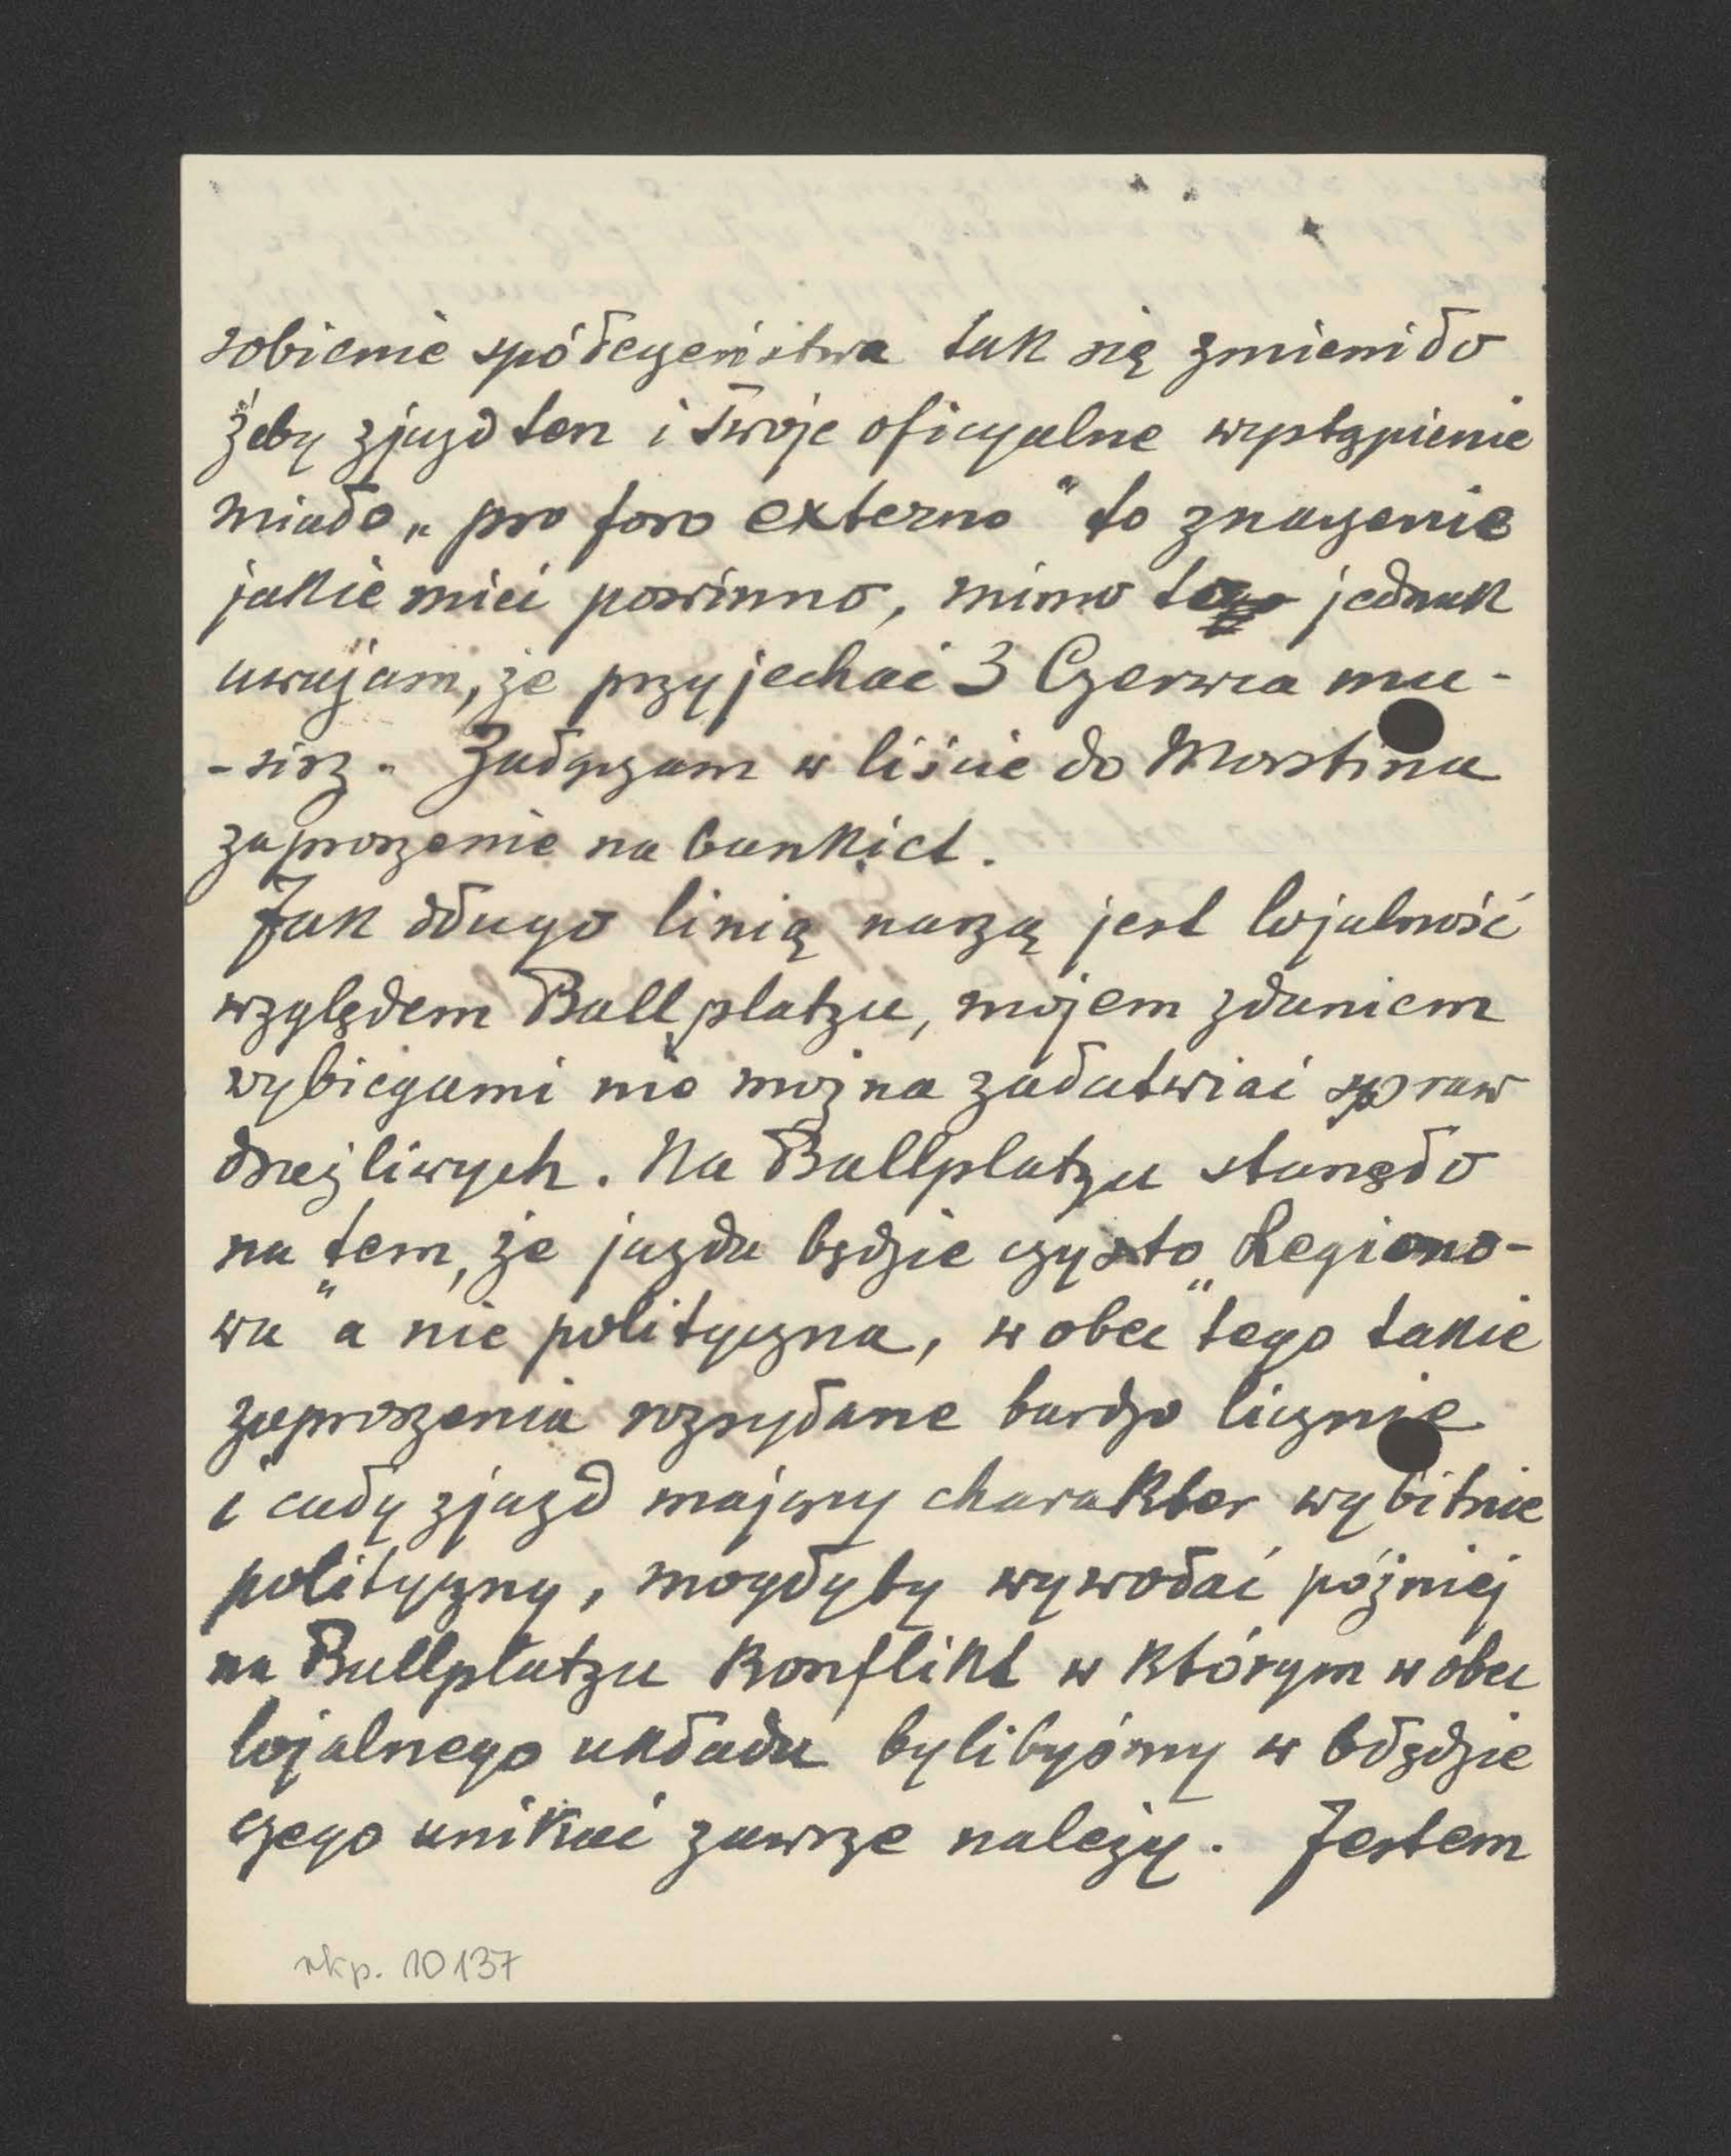 sobienie spółeczeństwa tak się zmieniło
żeby zjazd ten i twoje oficyalne wystąpienie
miało „pro foro externo" to znaczenie
jakie mieć powinno, mimo to jednak
uważam, że przyjechać 3 Czerwca mu-
-sisz. Załączam w liście do Morstina
zaproszenie na bankiet.
Jak długo linią naszą jest lojalność
względem Ballplatzu, mojem zdaniem
wybiegami nie można załatwiać spraw
drażliwych. Na Ballplatzu stanęło
na tem, że jazda będzie czysto „Legiono-
wa" a nie polityczna, wobec tego takie
zaproszenia rozsyłane bardzo licznie
i cały zjazd mający charakter wybitnie
polityczny, mogłyby wywołać później
na Ballplatzu konflikt w którym wobec
lojalnego układu bylibyśmy w błędzie
czego unikać zawsze należy. Jestem
rkp. 10137